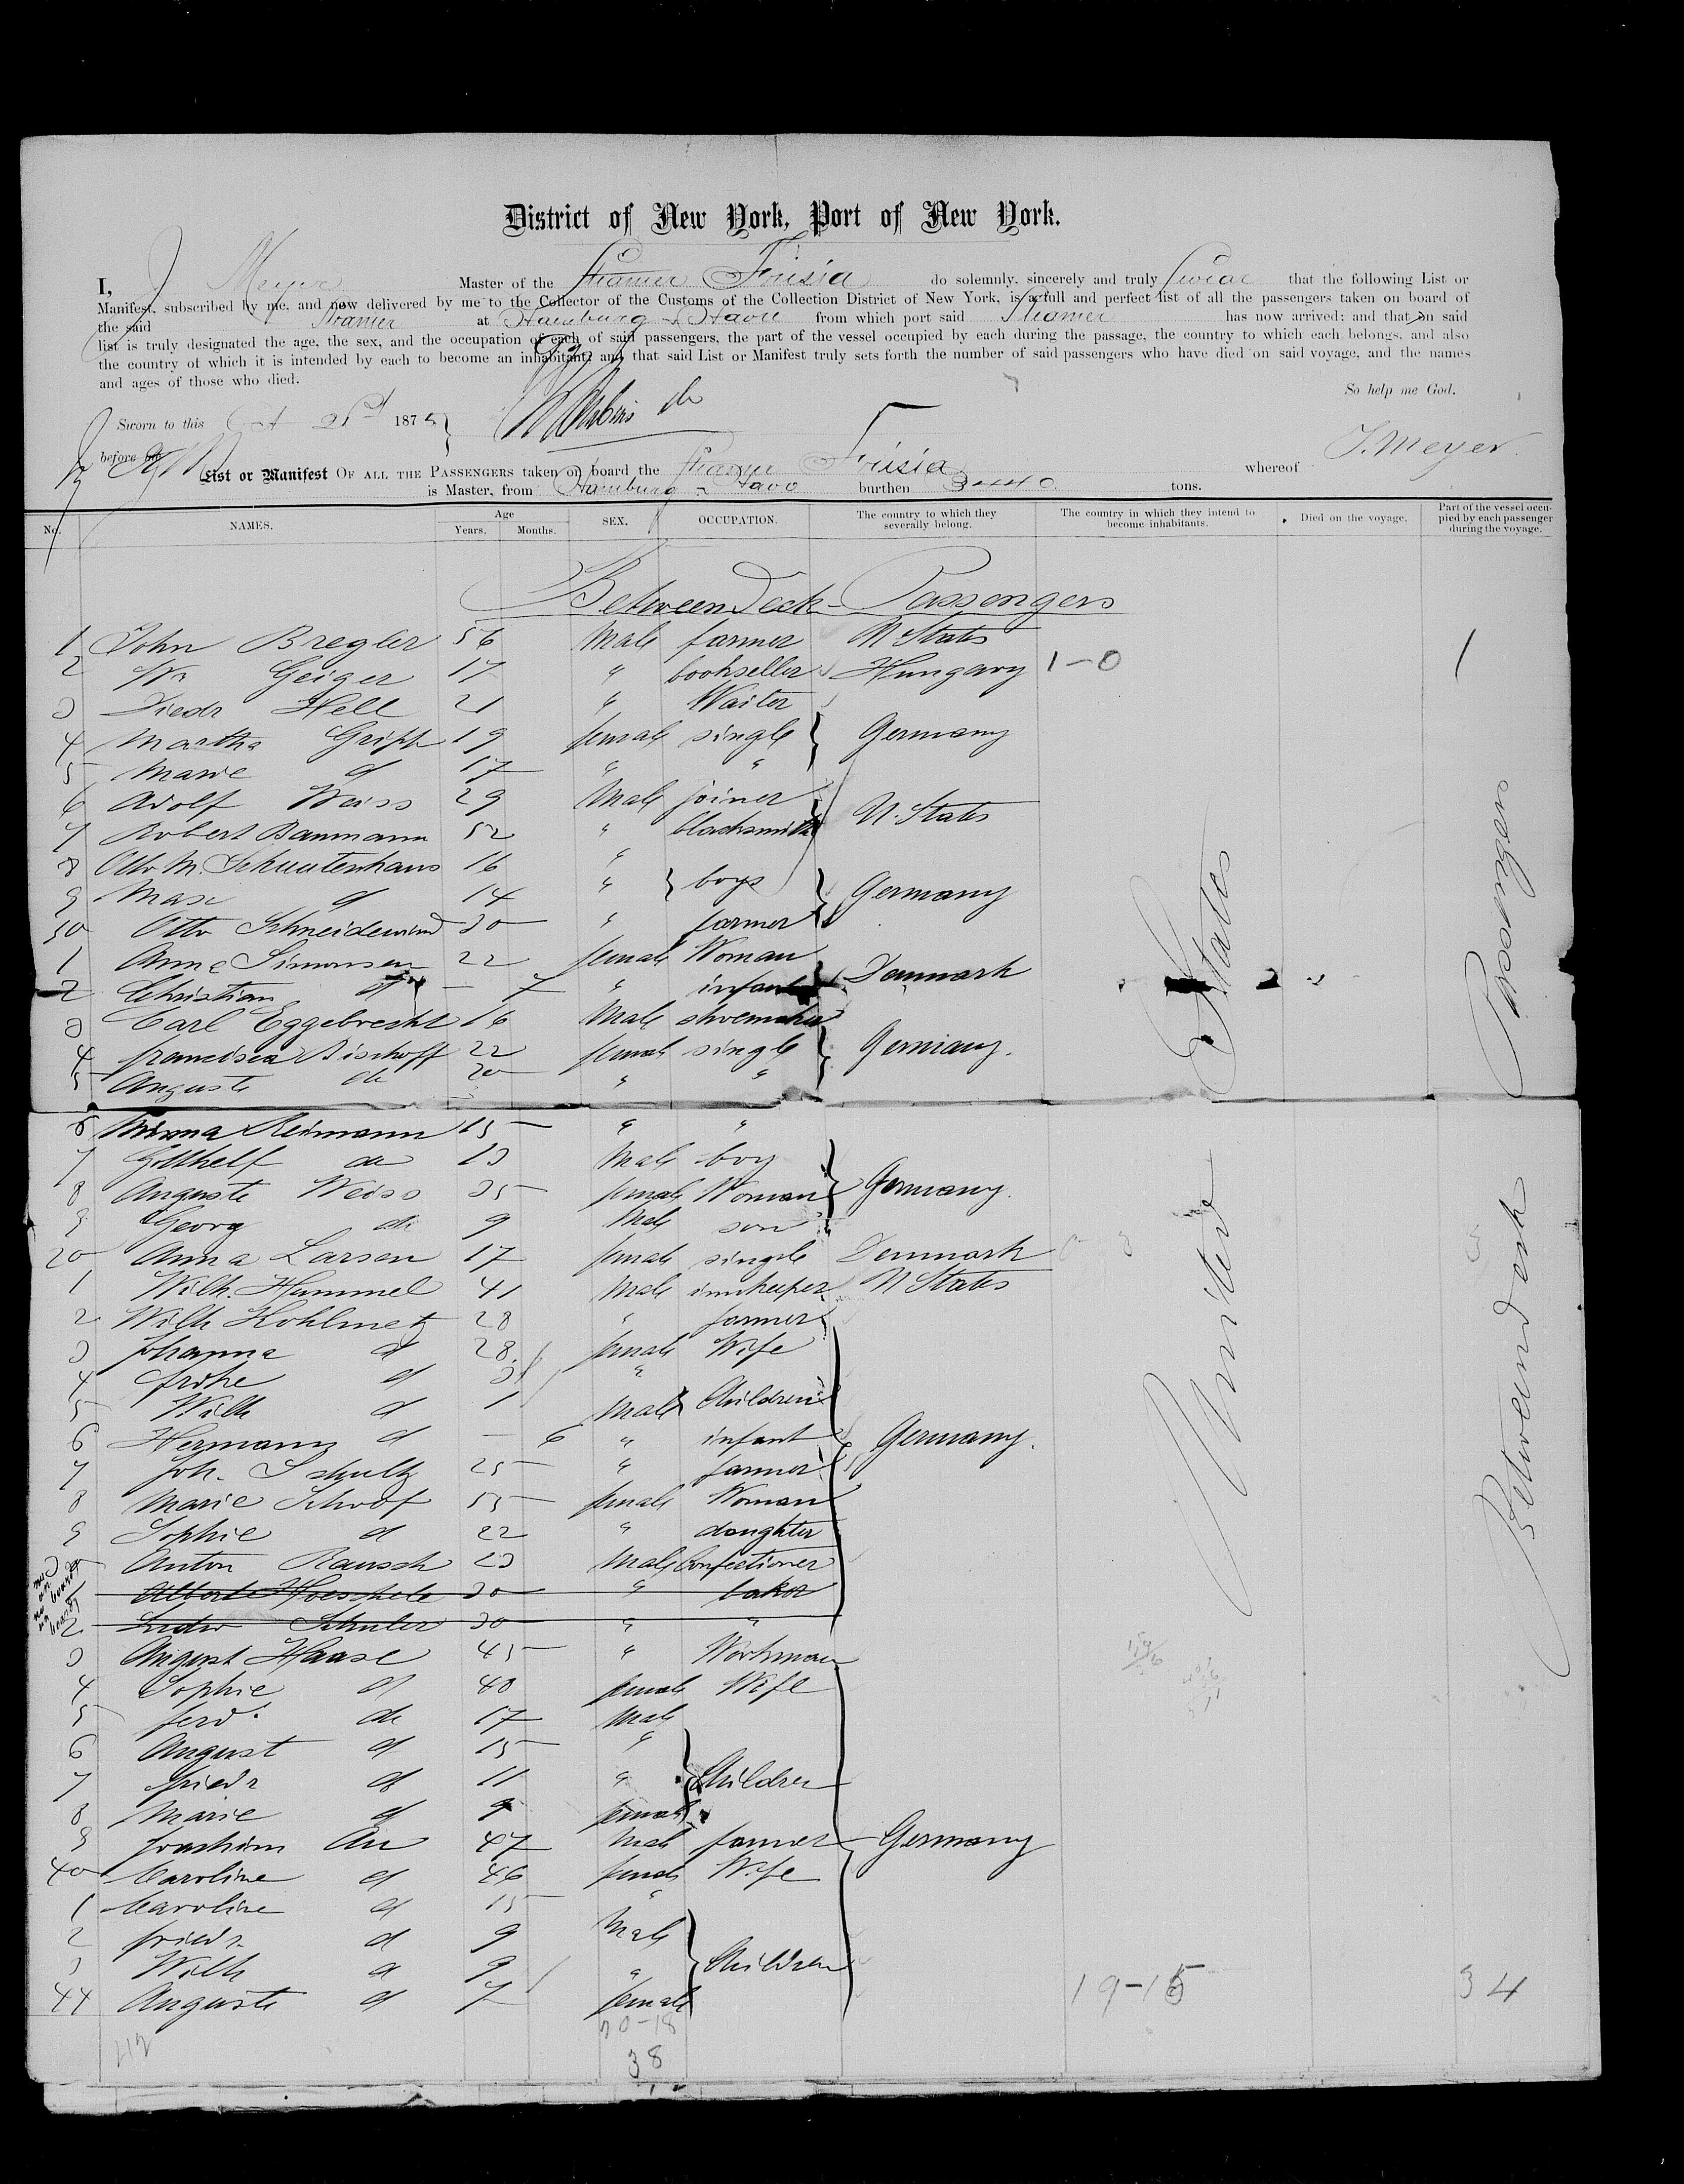 District of New York, Port of New York.
I, J Meyer Master of the Steamer Frisia do solemnly, sincerely and truly swear that the following List or
Manifest, subscribed by me, and now delivered by me to the Collector of the Customs of the Collection District of New York, is a full and perfect list of all the passengers taken on board of
the said Steamer at Hamburg & Havre from which port said Steamer has now arrived; and that on said
list is truly designated the age, the sex, and the occupation of each of said passengers, the part of the vessel occupied by each during the passage, the country to which each belongs, and also
the country of which it is intended by each to become an inhabitant; and that said List or Manifest truly sets forth the number of said passengers who have died on said voyage, and the names
and ages of those who died.
So help me God.
Sworn to this Oct 21st 1875
before me
J. Meyer
List or Manifest OF ALL THE PASSENGERS taken on board the Steamer Frisia whereof
is Master, from Hamburg & Havre burthen tons.
No. NAMES. Age Years. Months. SEX. OCCUPATION. The country to which they severally belong. The country in which they intend to become inhabitants. Died on the voyage. Part of the vessel occupied by each passenger during the voyage.
Between Deck Passengers
1 John Bregler 56 Male farmer U States
2 Wm Geiger 17 " bookseller Hungary 1-0 1
3 Diedr Hell 21 " Waiter
4 Martha Gripp 19 female single Germany
5 Marie d 17 " "
6 Adolf Weiss 29 Male joiner
7 Robert Baumann 52 " blacksmith U. States
8 Otto M. 16 "
9 Max d 14 " boys Germany
10 Otto Schneidewind 30 " farmer
1 Anna Simonsen 22 female Woman
2 Christian d — 7 " infant Denmark
3 Carl Eggebrecht 16 Male shoemaker
4 Francisca Bischoff 22 female single Germany.
5 Auguste do 20 " "
6 Minna Reimann 15 " "
7 Gotthelf do 13 Male boy
8 Auguste Weiss 35 female Woman Germany.
9 Georg do 9 Male son
20 Anna Larsen 17 female single Denmark
1 Wilh. Hummel 41 Male innkeeper U States
2 Wilh Kohlmetz 28 " farmer
3 Johanna d 28 female Wife
4 Frike d 3 "
5 Wilh d 1 Male Children
6 Hermann d — 6 " infant Germany.
7 Joh. Schultz 25 " farmer
8 Marie Schoof 55 female Woman
9 Sophie d 22 " daughter
30 Anton Rausch 23 Male Confectioner
1 Albert Hoeschele 30 " baker
2 Ludw Schuler 30 " "
3 August Haase 45 " Workman
4 Sophie d 40 female Wife
5 Ferd. do 17 Male
6 August d 15 "
7 Friedr d 11 " Children
8 Marie d 9 female
9 Joachim Au 47 Male farmer Germany
40 Caroline d 46 female Wife
1 Caroline d 15 "
2 Friedr d 9 Male
3 Wilh d 9 " Children
44 Auguste d 7 female
United States
Between deck Passengers
19-15 34
42
20-18
38